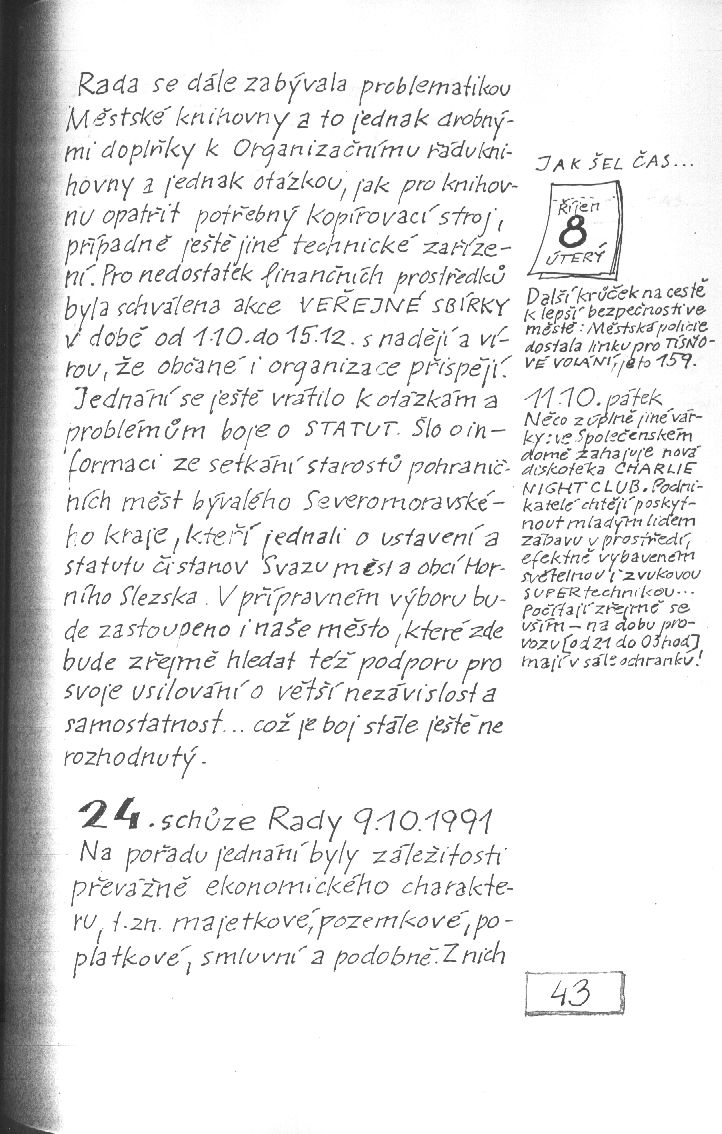 Rada se dále zabývala problematikou
Městské knihovny a to jednak drobný-
mi doplňky k Organizačnímu řádu kni-
hovny a jednak otázkou, jak pro knihov-
nu opatřit potřebný kopírovací stroj,
případně ještě jiné technické zaříze-
ní. Pro nedostatek finančních prostředků
byla schválena akce VEŘEJNÉ SBÍRKY
v době od 1.10. do 15.12. s nadějí a ví-
rou, že občané i organizace přispějí.
Jednání se ještě vrátilo k otázkám a
problémům boje o STATUT. Šlo o in-
formaci ze setkání starostů pohranič-
ních měst bývalého Severomoravské-
ho kraje, kteří jednali o ustavení a
statutu či stanov Svazu měst a obcí Hor-
ního Slezska. V přípravném výboru bu-
de zastoupeno i naše město, které zde
bude zřejmě hledat též podporu pro
svoje usilování o větší nezávislost a
samostatnost... což je boj stále ještě ne
rozhodnutý.
24. schůze Rady 9.10.1991
Na pořadu jednání byly záležitosti
převážně ekonomického charakte-
ru, t.zn. majetkové, pozemkové, po-
platkové, smluvní a podobně. Z nich
JAK ŠEL ČAS...
Říjen
8
ÚTERÝ
Další krůček na cestě
k lepší bezpečnosti ve
městě: Městská policie
dostala linku pro TÍSŇO-
VÉ VOLÁNÍ, je to 159.
11.10. pátek
Něco z úplně jiné vár-
ky: ve Společenském
domě zahajuje nová
diskotéka CHARLIE
NIGHT CLUB. Podni-
katelé chtějí poskyt-
nout mladým lidem
zábavu v prostředí,
efektně vybaveném
světelnou i zvukovou
SUPER technikou...
Počítají zřejmě se
vším – na dobu pro-
vozu [od 21 do 03 hod]
mají v sále ochranku!
43